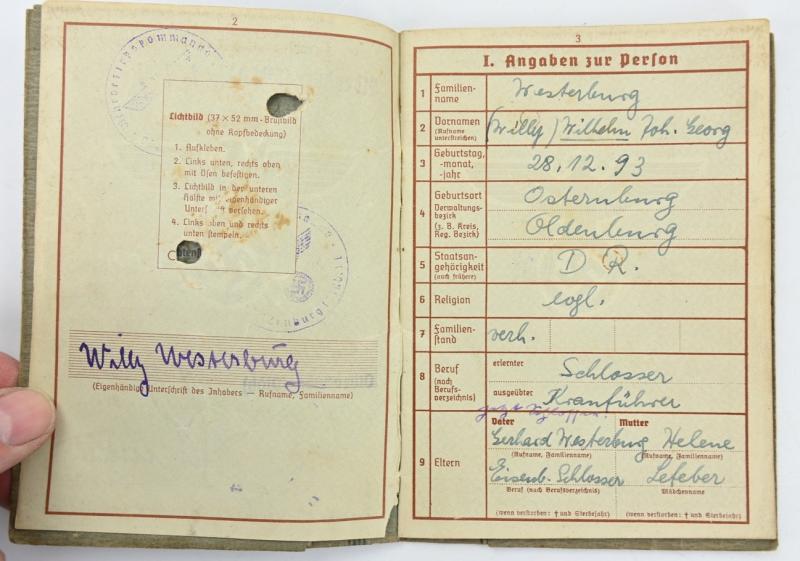 2
Wehrbezirkskommando
Lichtbild (37 × 52 mm - Brustbild
ohne Kopfbedeckung)
1. Aufkleben.
2. Links unten, rechts oben
mit Ösen befestigen.
3. Lichtbild in der unteren
Hälfte mit eigenhändiger
versehen.
4. Links oben und rechts
unten stempeln.
Willy Westerburg
(Eigenhändige Unterschrift des Inhabers — Rufname, Familienname)
3
I. Angaben zur Person
1 Familien-
name
Westerburg
2 Vornamen
(Rufname
unterstreichen)
(Willy) Wilhelm Joh. Georg
3 Geburtstag,
-monat,
-jahr
28.12.93
4 Geburtsort
Verwaltungs-
bezirk
(z. B. Kreis,
Reg. Bezirk)
Osternburg
Oldenburg
5 Staatsan-
gehörigkeit
(auch frühere)
D. R.
6 Religion
evgl.
7 Familien-
stand
verh.
8 Beruf
(nach
Berufs-
verzeichnis)
erlernter
Schlosser
ausgeübter
Kranführer
jetzt Schlosser
9 Eltern
Vater
Mutter
Gerhard Westerburg
Helene
(Rufname, Familienname)
(Rufname, Familienname)
Eisenb.-Schlosser
Lefeber
Beruf (nach Berufsverzeichnis)
Mädchenname
(wenn verstorben: † und Sterbejahr)
(wenn verstorben: † und Sterbejahr)